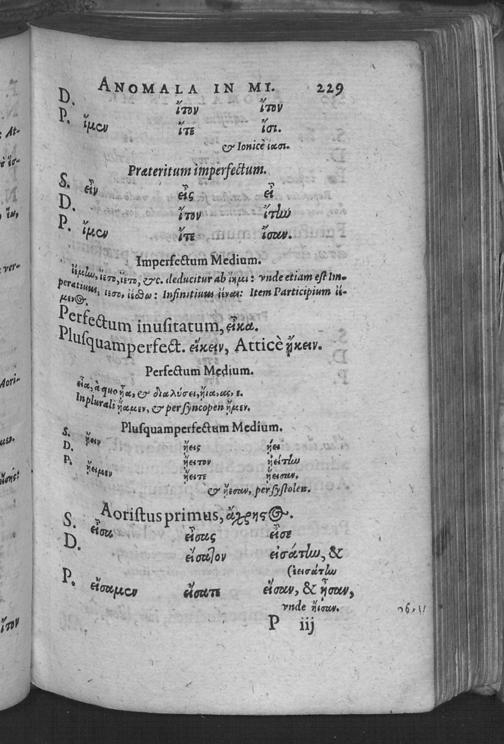 ANOMALA IN MI. 229
D. ἴτον ἴτον
P. ἴμεν ἴτε ἴσι.
& Ionicè ἴασι.
Præteritum imperfectum.
S. εἶν εἶς εἶ
D. ἴτον ἴτην
P. ἴμεν ἴτε ἴσαν.
Imperfectum Medium.
ἰέμην, ἵεσο, ἵετο, &c. deducitur ab ἵημι: vnde etiam est Im-
peratiuus, ἵεσο, ἱέσθω: Infinitiuus ἰέναι: Item Participium ἱέ-
μενος.
Perfectum inusitatum, εἶκα.
Plusquamperfect. εἴκειν, Atticè ᾔκειν.
Perfectum Medium.
εἶα, à quo ἦα, & διαλύσει, ἤια, ας, ε.
In plurali ἤαμεν, & per syncopen ἦμεν.
Plusquamperfectum Medium.
S. ᾔειν ᾔεις ᾔει
D. ᾔειτον ᾐείτην
P. ᾔειμεν ᾔειτε ᾔεισαν,
& ᾔεσαν, per systolen.
Aoristus primus, ἄχρηστος.
S. εἶσα εἶσας εἶσε
D. εἴσατον εἰσάτην, &
(ἐεισάτην
P. εἴσαμεν εἴσατε εἶσαν, & ᾖσαν,
vnde ἤισαν.
P iij